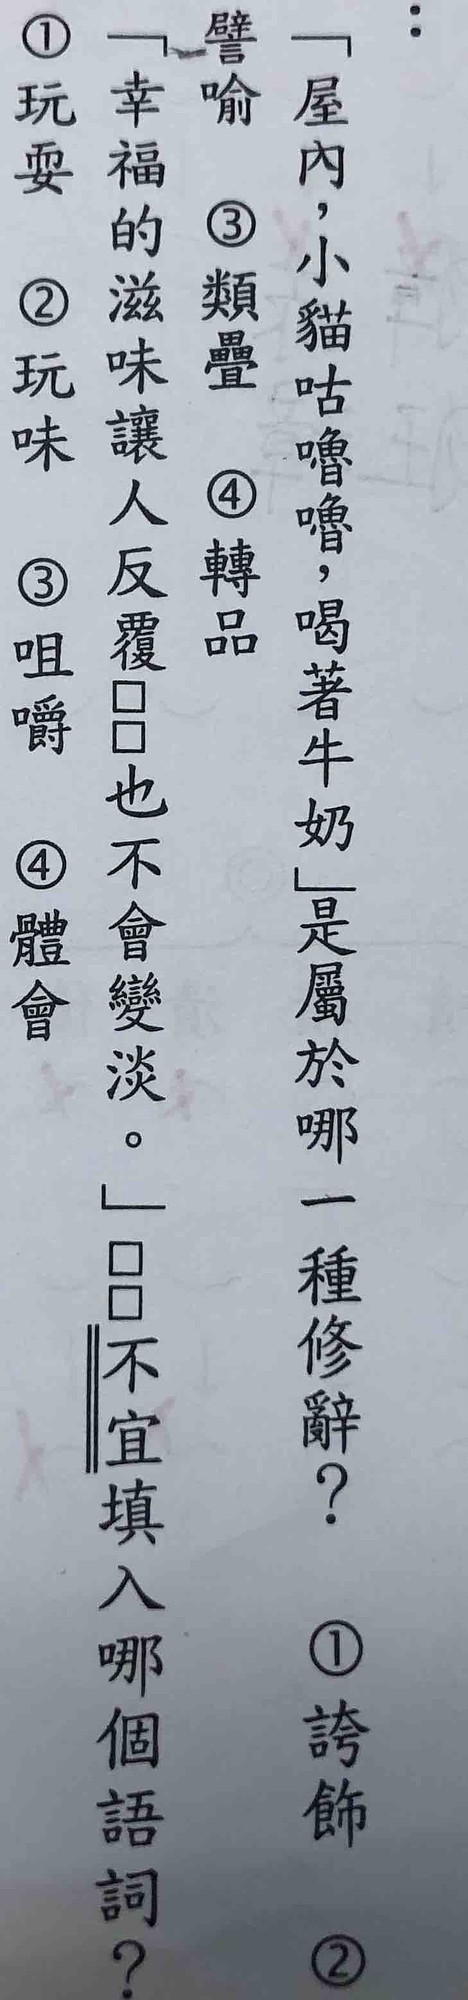 ：
「屋內，小貓咕嚕嚕，喝著牛奶」是屬於哪一種修辭？　①誇飾　②
譬喻　③類疊　④轉品
「幸福的滋味讓人反覆□□也不會變淡。」□□不宜填入哪個語詞？
①玩耍　②玩味　③咀嚼　④體會